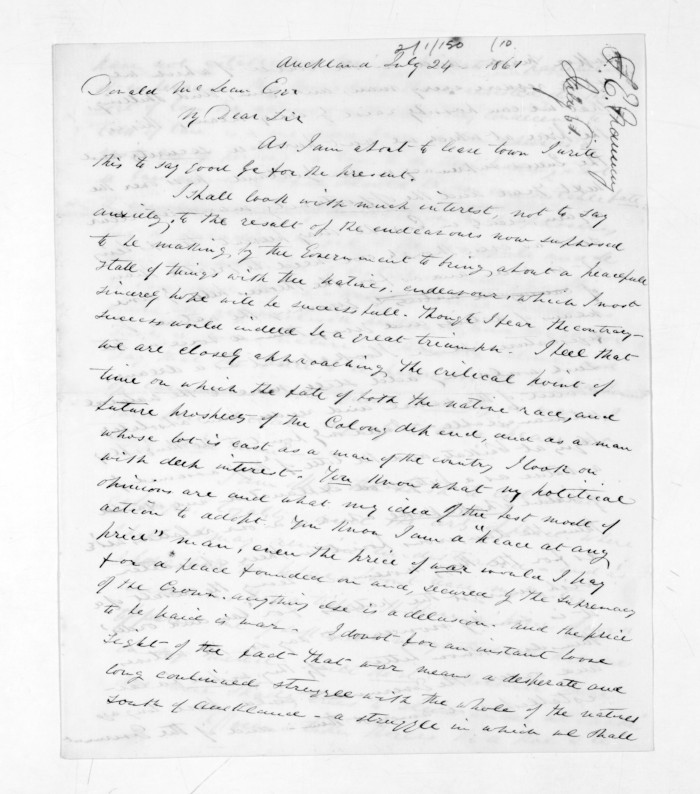 2/1/150 /10.
Auckland July 24 1861
F. E. Maning
July 61
Donald Mc Lean Esqr
My Dear Sir
As I am about to leave town I write
this to say good by for the present.
I shall look with much interest, not to say
anxiety, to the result of the endeavours now supposed
to be making, by the Government to bring about a peacefull
state of things with the natives, endeavours which I most
sincerely hope will be successfull. Though I fear the contrary -
success would indeed be a great triumph. I feel that
we are closely approaching the critical point of
time on which the fate of both the native race, and
future prospects of the Colony depend, and as a man
whose lot is cast as a man of the country I look on
with deep interest. You know what my political
opinions are and what my idea of the best mode of
action to adopt. You know I am a "peace at any
price" man, even the price of war would I pay
for a peace founded on and, secured by the supremacy
of the Crown. anything else is a delusion. and the price
to be paid is war. I do not for an instant loose
sight of the fact that war means a desperate and
long continued struggle with the whole of the natives
south of Auckland - a struggle in which we shall